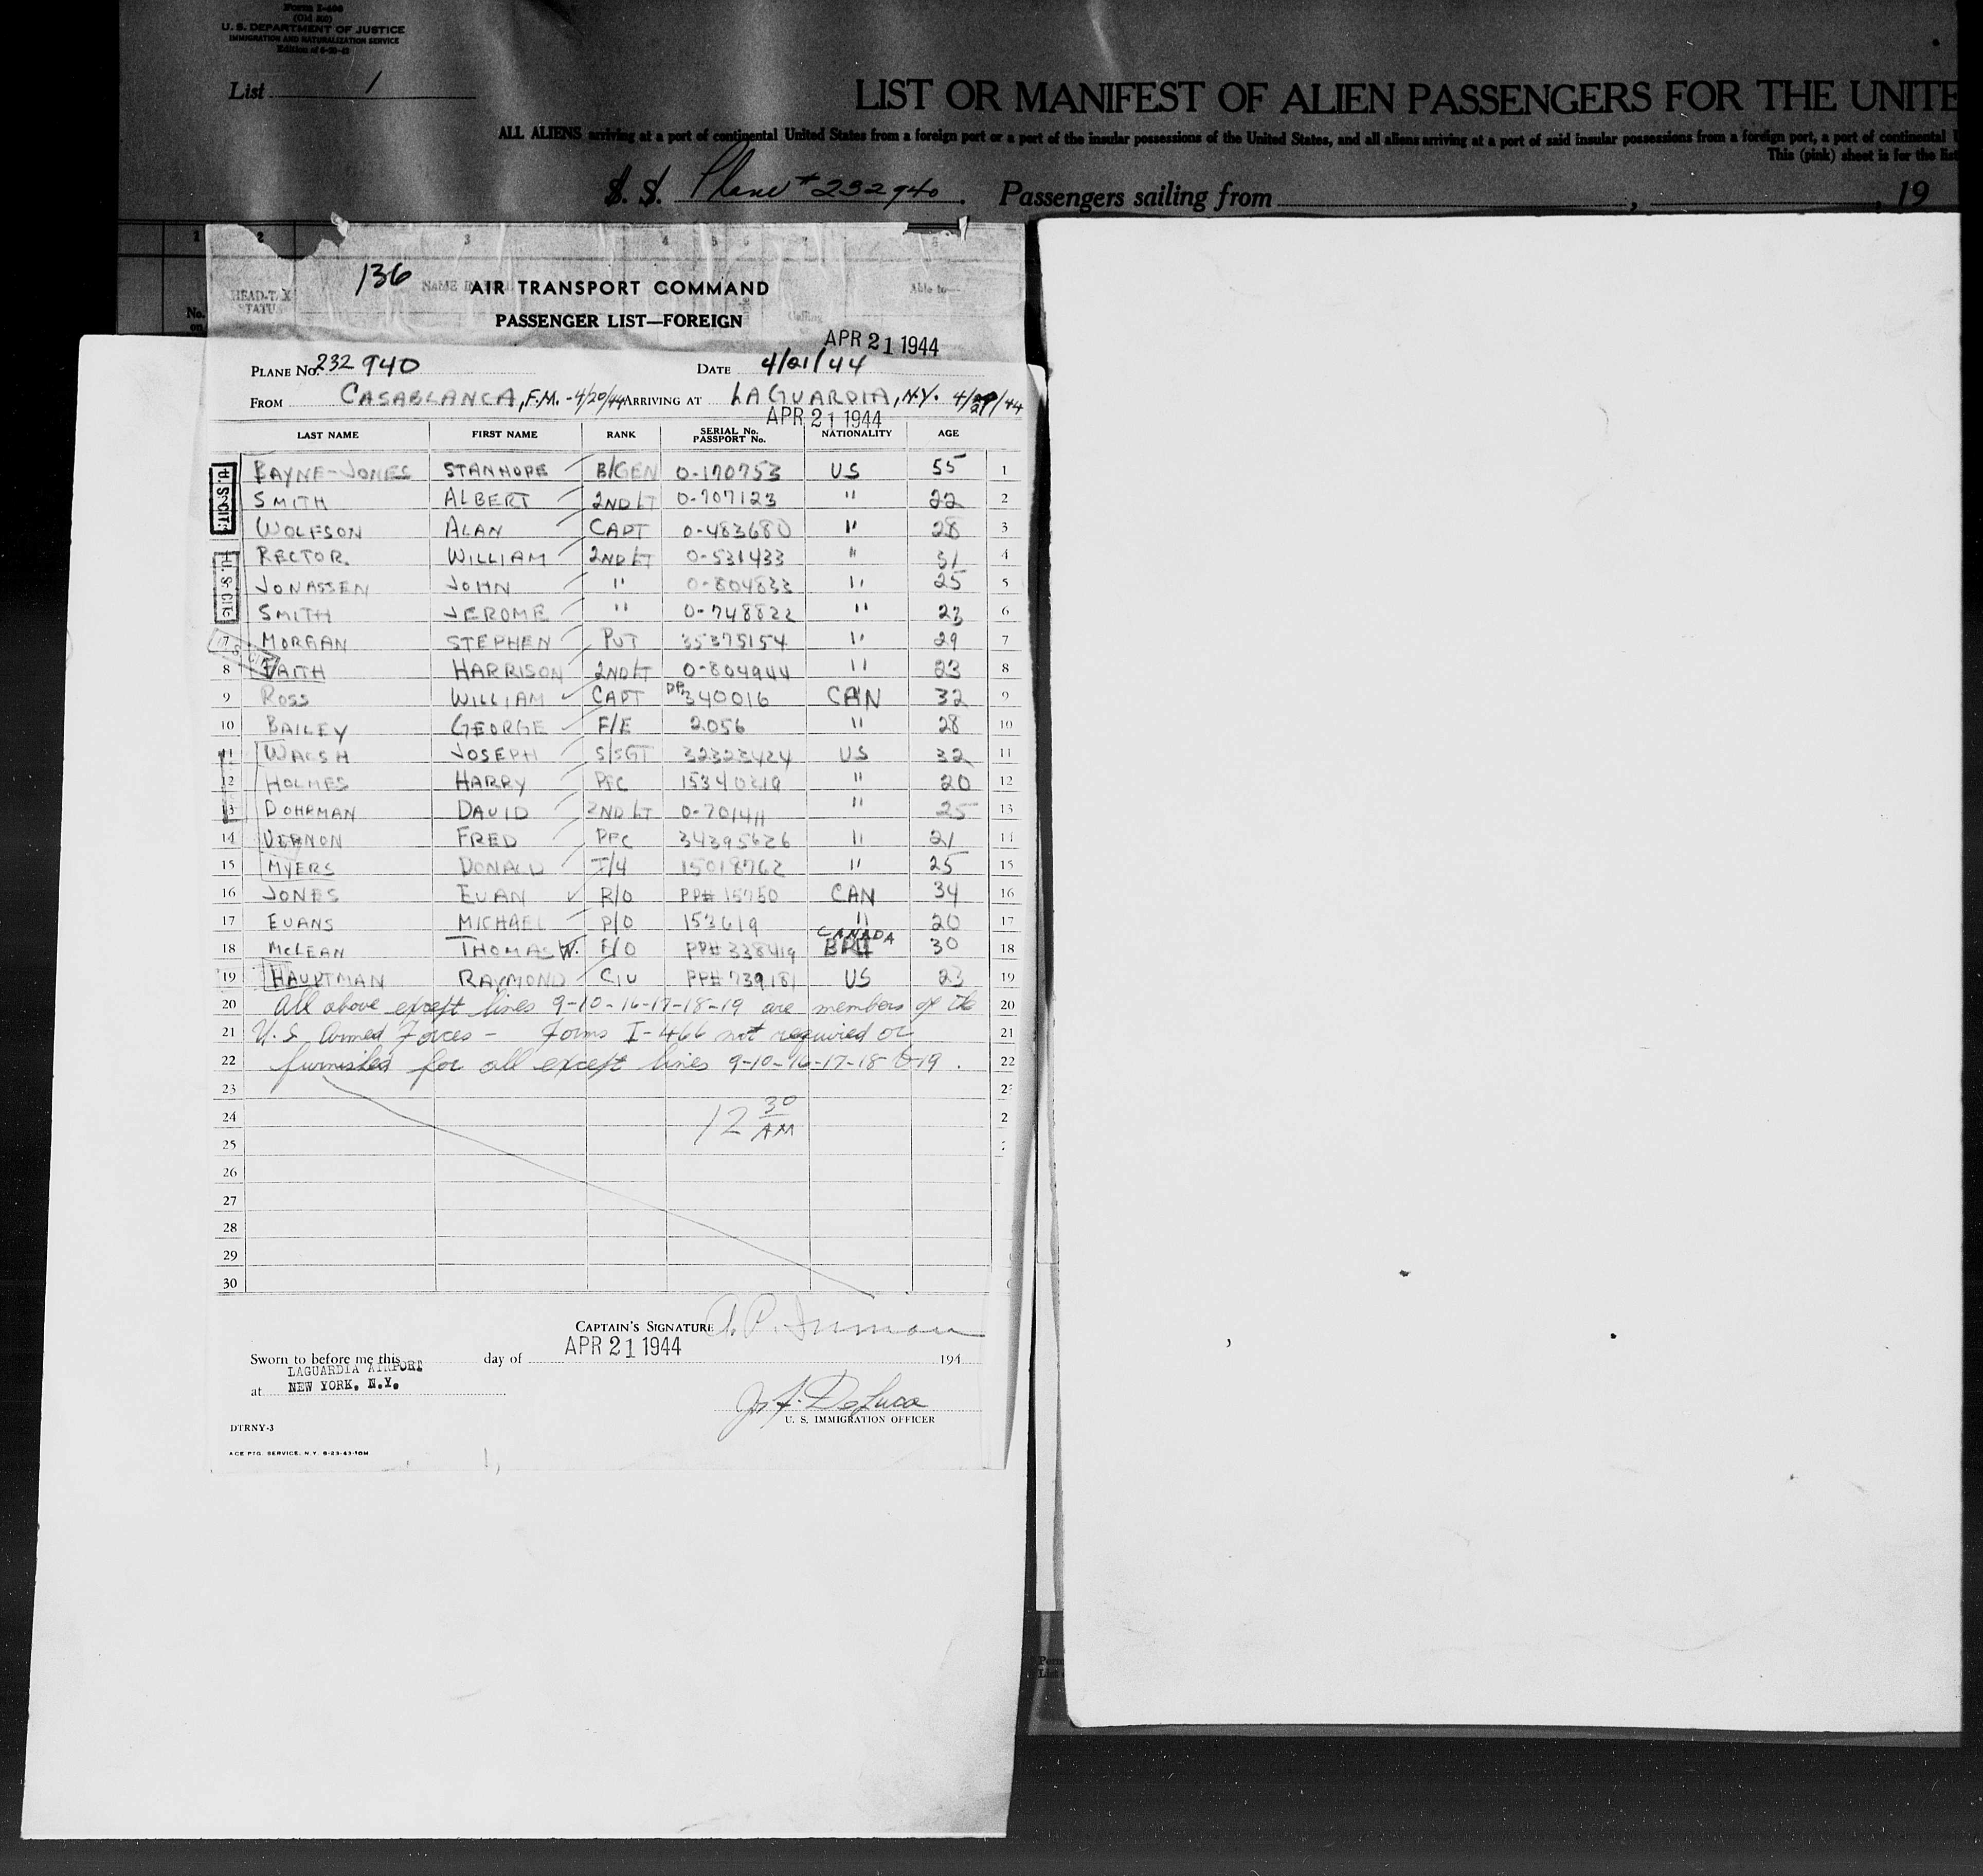 Form I-466
(Old 500)
U. S. DEPARTMENT OF JUSTICE
IMMIGRATION AND NATURALIZATION SERVICE
List 1
LIST OR MANIFEST OF ALIEN PASSENGERS FOR THE UNITE
ALL ALIENS arriving at a port of continental United States from a foreign port or a port of the insular possessions of the United States, and all aliens arriving at a port of said insular possessions from a foreign port, a port of continental
This (pink) sheet is for the list
S. S. Plane # 232940. Passengers sailing from , , 19
1 2 3 4 5 6 8
HEAD-TAX STATU Able to—
136
AIR TRANSPORT COMMAND
PASSENGER LIST—FOREIGN
APR 21 1944
PLANE No. 232 940 DATE 4/21/44
FROM CASABLANCA, F.M. - 4/20/44 ARRIVING AT LAGUARDIA, N.Y. 4/21/44
APR 21 1944
LAST NAME FIRST NAME RANK SERIAL No. PASSPORT No. NATIONALITY AGE
BAYNE-JONES STANHOPE B/GEN 0-170753 US 55 1
SMITH ALBERT 2ND LT 0-707123 " 22 2
WOLFSON ALAN CAPT 0-483680 " 28 3
RECTOR. WILLIAM 2ND LT 0-531433 " 31 4
JONASSEN JOHN " 0-804833 " 25 5
SMITH JEROME " 0-748822 " 23 6
7 MORGAN STEPHEN PVT 35375154 " 29 7
8 FAITH HARRISON 2ND LT 0-804944 " 23 8
9 ROSS WILLIAM CAPT PP 340016 CAN 32 9
10 BAILEY GEORGE F/E 2056 " 28 10
11 WALSH JOSEPH S/SGT 32323424 US 32 11
12 HOLMES HARRY PFC 15340219 " 20 12
13 DOHRMAN DAVID 2ND LT 0-701411 " 25 13
14 VERNON FRED PFC 34395626 " 21 14
15 MYERS DONALD T/4 15018762 " 25 15
16 JONES EVAN R/O PP# 15750 CAN 34 16
17 EVANS MICHAEL P/O 153619 " 20 17
18 McLEAN THOMAS W. F/O PP# 338419 CANADA 30 18
19 HAUPTMAN RAYMOND CIV PP# 739181 US 23 19
20 All above except lines 9-10-16-17-18-19 are members of the 20
21 U.S. Armed Forces - Forms I-466 not required or 21
22 furnished for all except lines 9-10-16-17-18 & 19. 22
23
24 12 30 AM
25
26
27
28
29
30
U. S. CIT.
U. S. CIT.
CAPTAIN'S SIGNATURE A. P. Inman
APR 21 1944
Sworn to before me this day of 194
LAGUARDIA AIRPORT
at NEW YORK, N.Y.
Jos. F. DeLuca
U. S. IMMIGRATION OFFICER
DTRNY-3
ACE PTG. SERVICE, N.Y. 8-23-43-10M